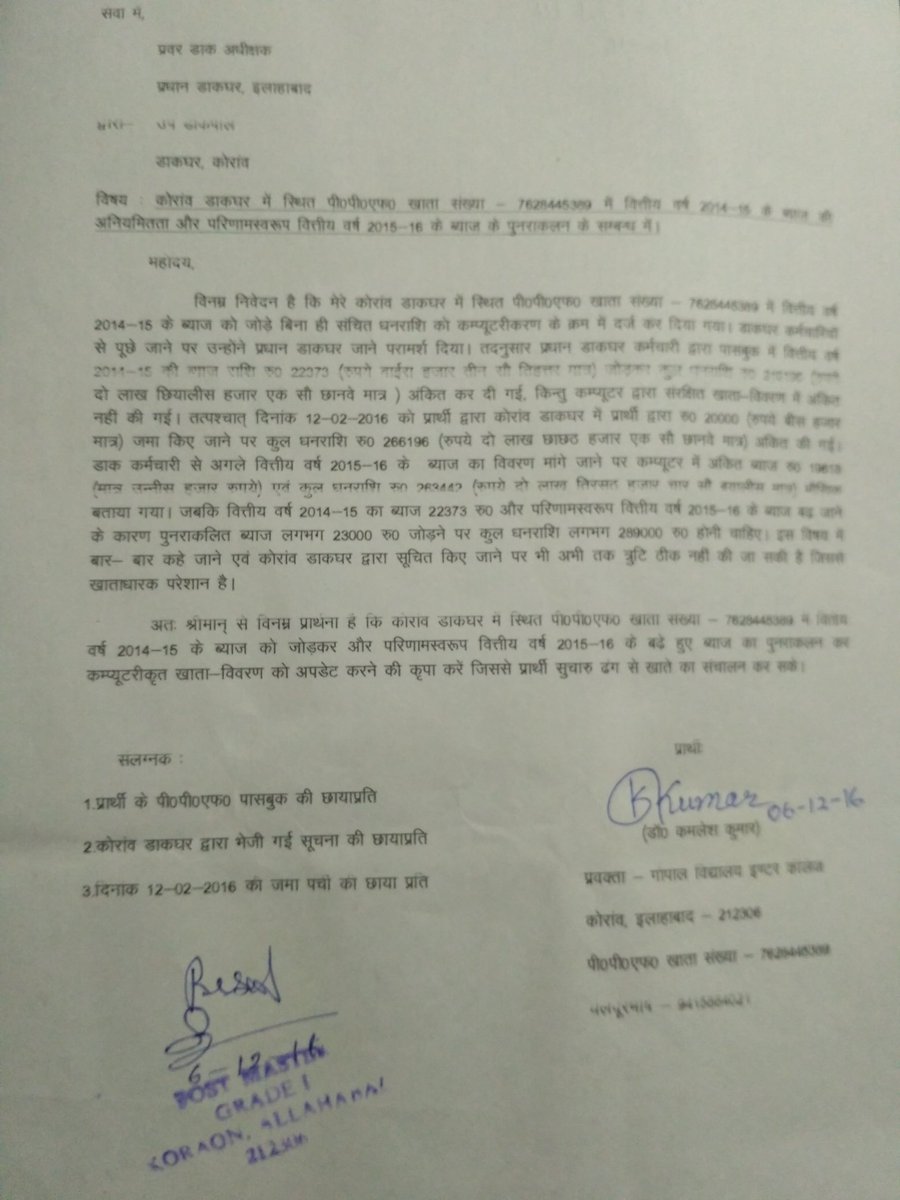 सेवा में,
प्रवर डाक अधीक्षक
प्रधान डाकघर, इलाहाबाद
द्वारा– उप डाकपाल
डाकघर, कोरांव
विषय : कोरांव डाकघर में स्थित पी0पी0एफ0 खाता संख्या – 7628445389 में वित्तीय वर्ष 2014-15 के ब्याज की
अनियमितता और परिणामस्वरूप वित्तीय वर्ष 2015-16 के ब्याज के पुनराकलन के सम्बन्ध में।
महोदय,
विनम्र निवेदन है कि मेरे कोरांव डाकघर में स्थित पी0पी0एफ0 खाता संख्या – 7628445389 में वित्तीय वर्ष
2014–15 के ब्याज को जोड़े बिना ही संचित धनराशि को कम्प्यूटरीकरण के क्रम में दर्ज कर दिया गया। डाकघर कर्मचारियों
से पूछे जाने पर उन्होने प्रधान डाकघर जाने परामर्श दिया। तदनुसार प्रधान डाकघर कर्मचारी द्वारा पासबुक में वित्तीय वर्ष
2014–15 की ब्याज राशि रु0 22373 (रूपये बाईस हजार तीन सौ तिहत्तर मात्र) जोड़कर कुल धनराशि रु0 246196
दो लाख छियालीस हजार एक सौ छानवे मात्र ) अंकित कर दी गई, किन्तु कम्प्यूटर द्वारा संरक्षित खाता–विवरण में अंकित
नहीं की गई। तत्पश्चात् दिनांक 12–02–2016 को प्रार्थी द्वारा कोरांव डाकघर में प्रार्थी द्वारा रु0 20000 (रुपये बीस हजार
मात्र) जमा किए जाने पर कुल धनराशि रु0 266196 (रुपये दो लाख छाछठ हजार एक सौ छानवे मात्र) अंकित की गई।
डाक कर्मचारी से अगले वित्तीय वर्ष 2015–16 के ब्याज का विवरण मांगे जाने पर कम्प्यूटर में अंकित ब्याज रु0
(मात्र उन्नीस हजार रूपये) एवं कुल धनराशि रु0 263442 (रूपये दो लाख तिरसठ हजार चार सौ बयालीस मात्र) मौखिक
बताया गया। जबकि वित्तीय वर्ष 2014–15 का ब्याज 22373 रु0 और परिणामस्वरूप वित्तीय वर्ष 2015–16 के ब्याज बढ़ जाने
के कारण पुनराकलित ब्याज लगभग 23000 रु0 जोड़ने पर कुल धनराशि लगभग 289000 रु0 होनी चाहिए। इस विषय में
बार– बार कहे जाने एवं कोरांव डाकघर द्वारा सूचित किए जाने पर भी अभी तक त्रुटि ठीक नहीं की जा सकी है जिससे
खाताधारक परेशान है।
अतः श्रीमान् से विनम्र प्रार्थना है कि कोरांव डाकघर में स्थित पी0पी0एफ0 खाता संख्या – 7628445389 में वित्तीय
वर्ष 2014–15 के ब्याज को जोड़कर और परिणामस्वरूप वित्तीय वर्ष 2015–16 के बढ़े हुए ब्याज का पुनराकलन कर
कम्प्यूटरीकृत खाता–विवरण को अपडेट करने की कृपा करें जिससे प्रार्थी सुचारु ढंग से खाते का संचालन कर सके।
संलग्नक :
1.प्रार्थी के पी0पी0एफ0 पासबुक की छायाप्रति
2.कोरांव डाकघर द्वारा भेजी गई सूचना की छायाप्रति
3.दिनांक 12–02–2016 की जमा पर्ची की छाया प्रति
प्रार्थी
KKumar 06-12-16
(डॉ0 कमलेश कुमार)
प्रवक्ता – गोपाल विद्यालय इण्टर कालेज
कोरांव, इलाहाबाद – 212306
पी0पी0एफ0 खाता संख्या – 7628445389
6-12-16
POST MASTER
GRADE I
KORAON, ALLAHABAD